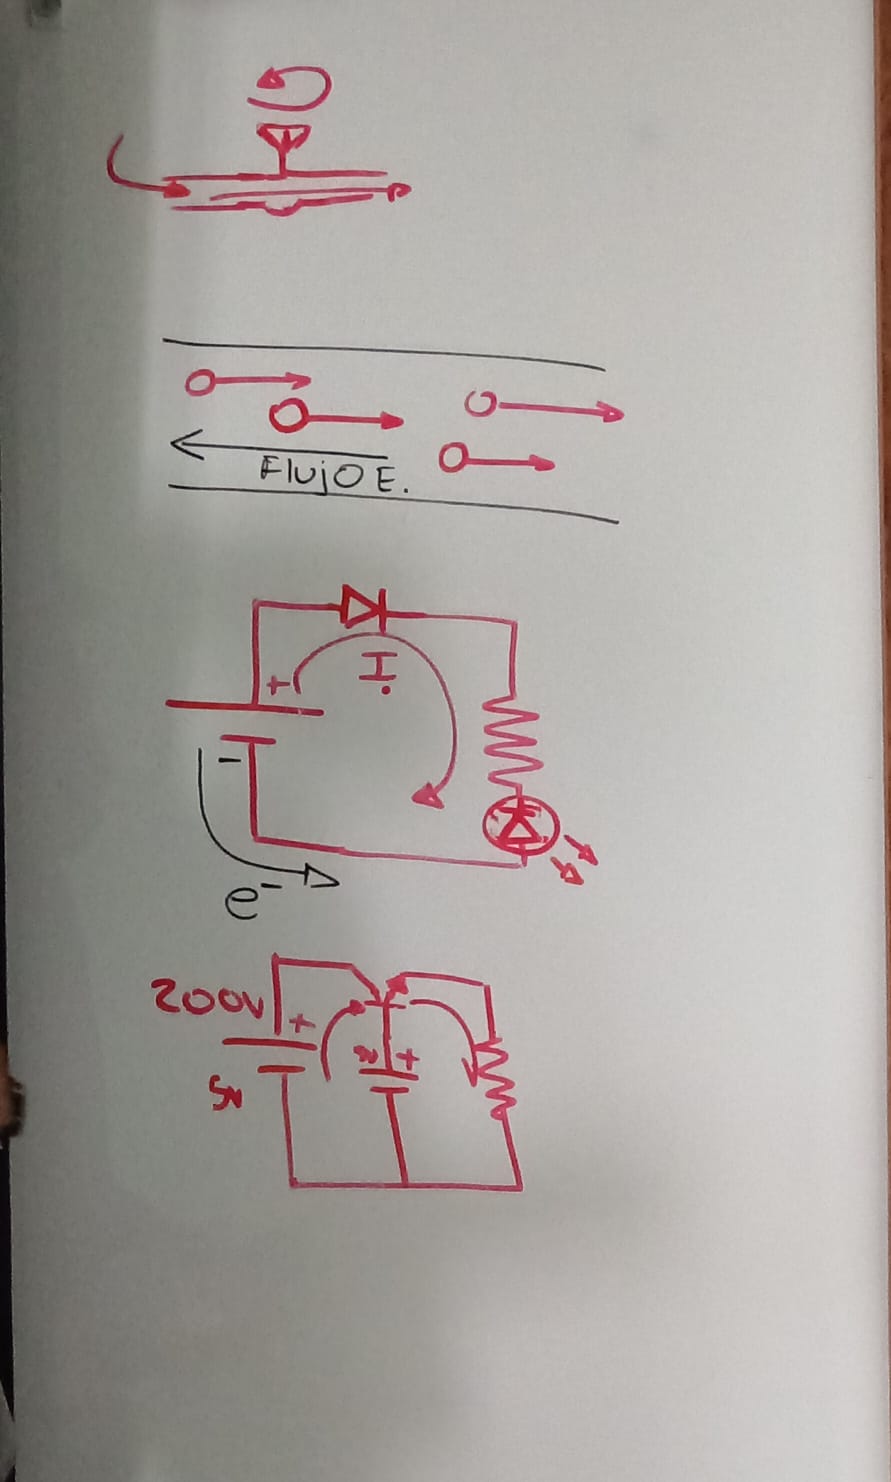 Flujo E.
+
I.
-
e⁻
200V
+
+
5v